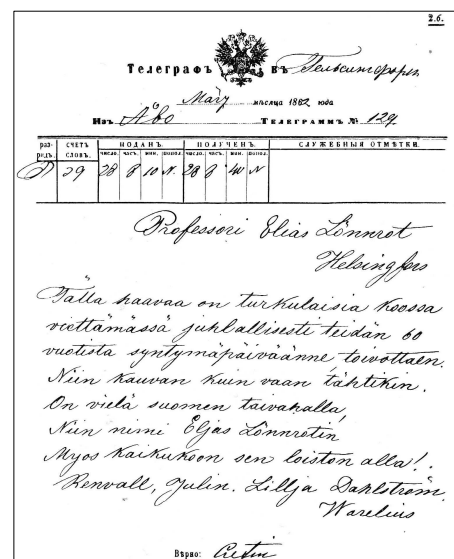 2.6.
Телеграфъ въ Гельсингфорсъ
März мѣсяца 1862 года
Изъ Åbo Телеграммъ № 129.
раз-рядъ. СЧЕТЪ СЛОВЪ. ПОДАНЪ. ПОЛУЧЕНЪ. СЛУЖЕБНЫЯ ОТМѢТКИ.
число. часъ. мин. попол. число. часъ. мин. попол.
29 28 8 10 N. 28 8 40 N
Professori Elias Lönnrot
Helsingfors
Tällä haavaa on turkulaisia koossa
viettämässä juhlallisesti teidän 60
vuotista syntymäpäiväänne toivottaen.
Niin kauvan kuin vaan tähtikin.
On vielä suomen taivahalla,
Niin nimi Eljas Lönnrotin
Myos kaikukoon sen loiston alla!.
Renvall, Julin. Lillja Dahlström,
Warelius
Вѣрно: